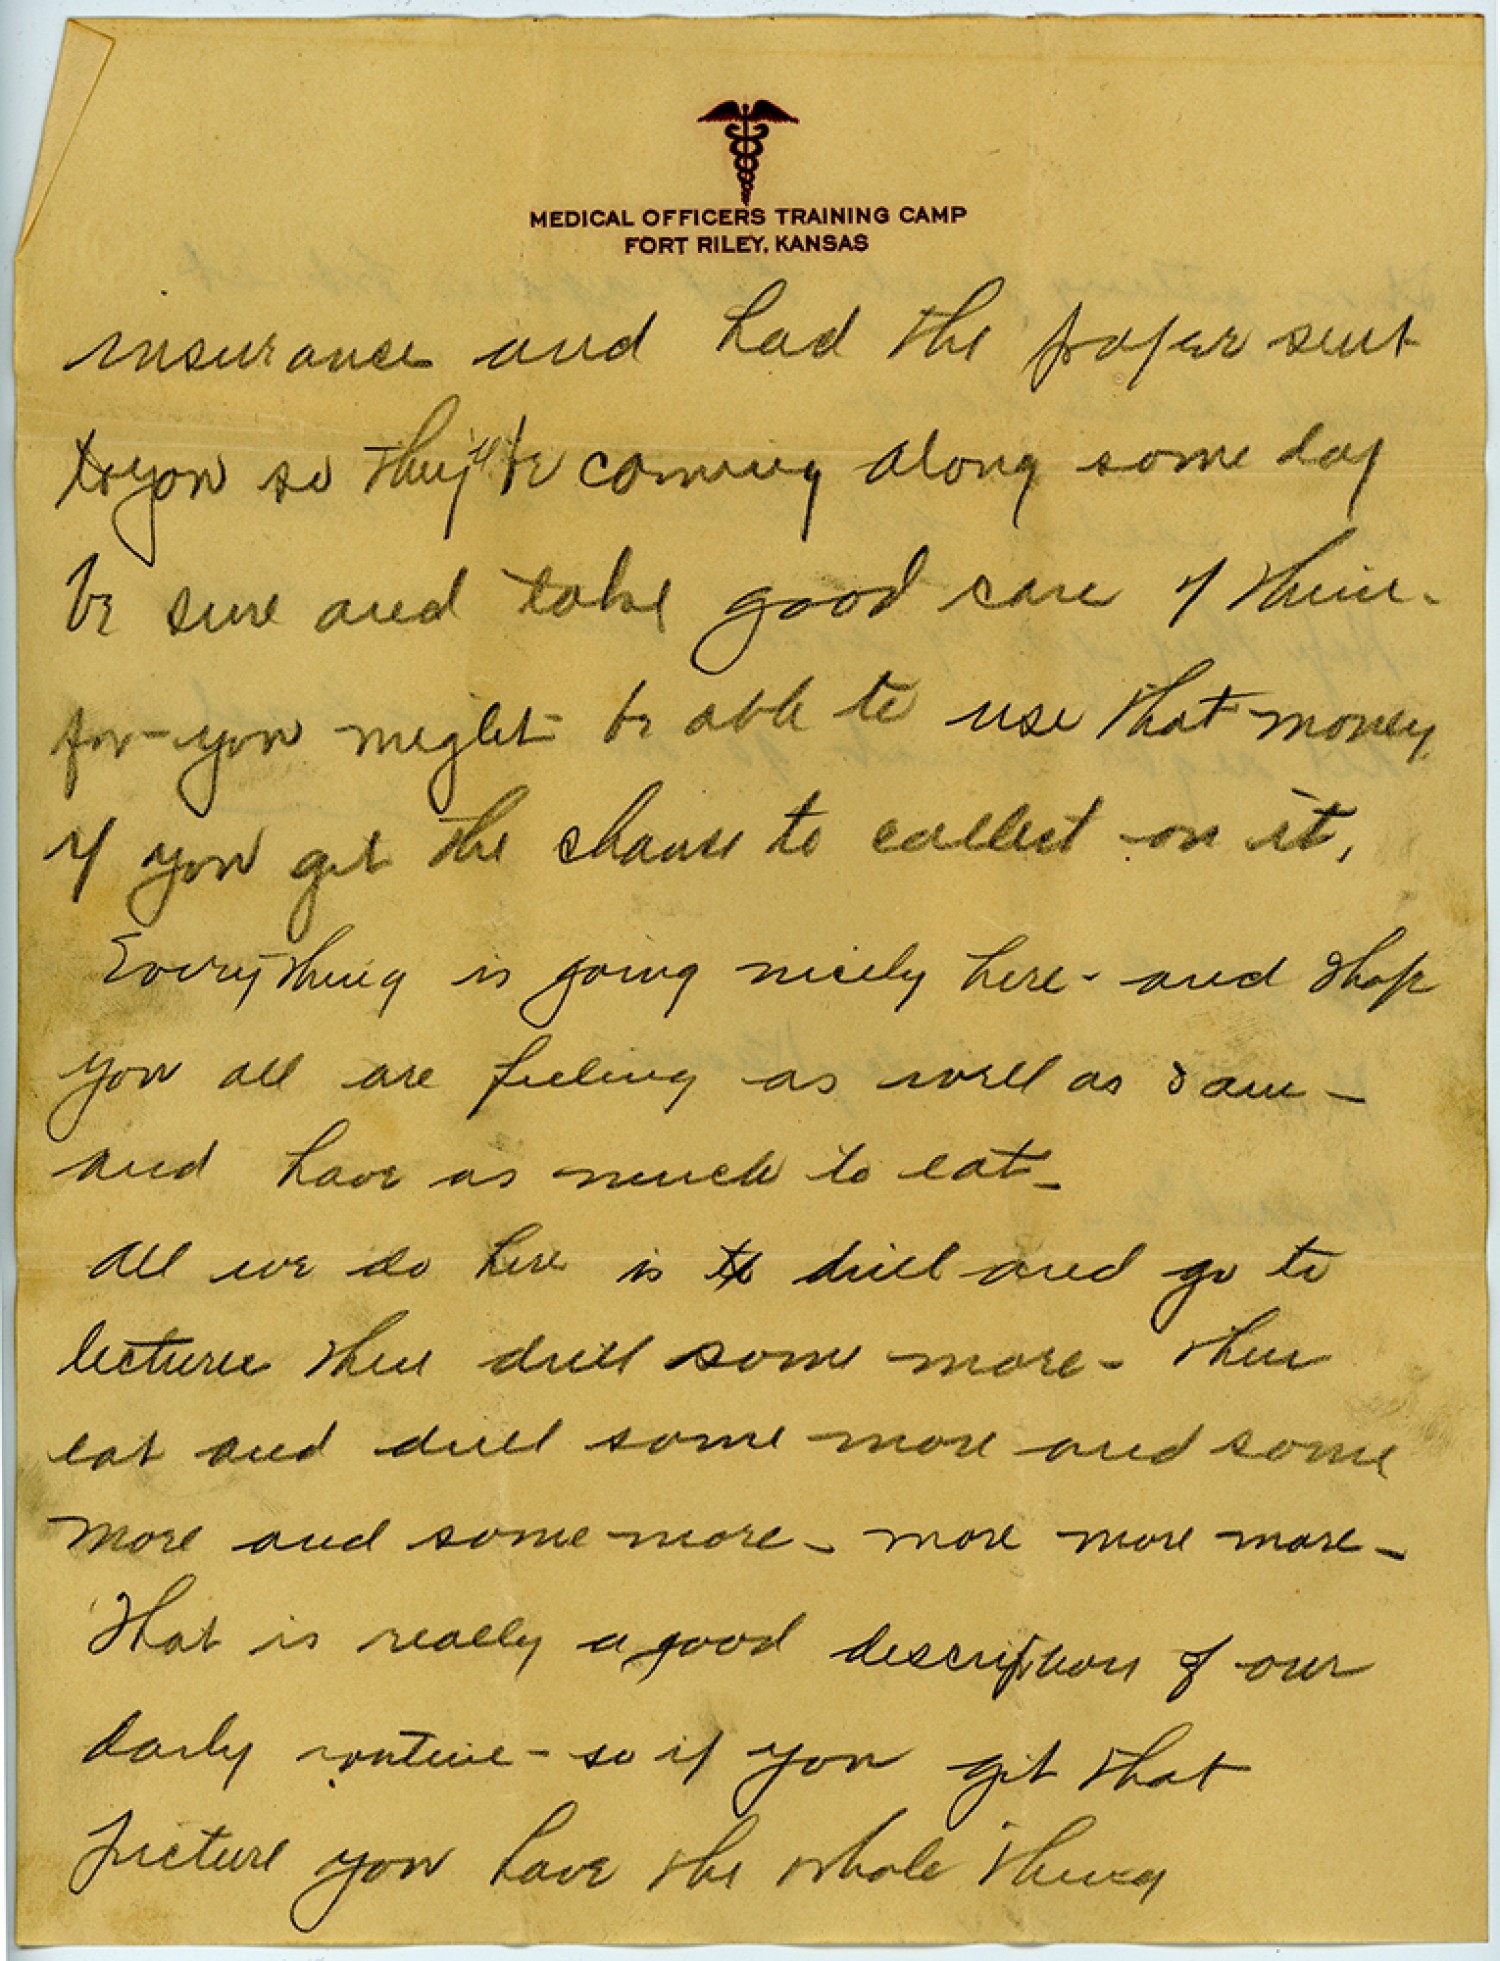 MEDICAL OFFICERS TRAINING CAMP
FORT RILEY, KANSAS
insurance and had the paper sent
to you so they'll be coming along some day
be sure and take good care of them -
for - you might be able to use that money
if you get the chance to collect on it,
Everything is going nicely here - and I hope
you all are feeling as well as I am -
and have as much to eat -
All we do here is to drill and go to
lectures then drill some more - then
eat and drill some more and some
more and some more - more more more -
That is really a good description of our
daily routine - so if you get that
picture you have the whole thing